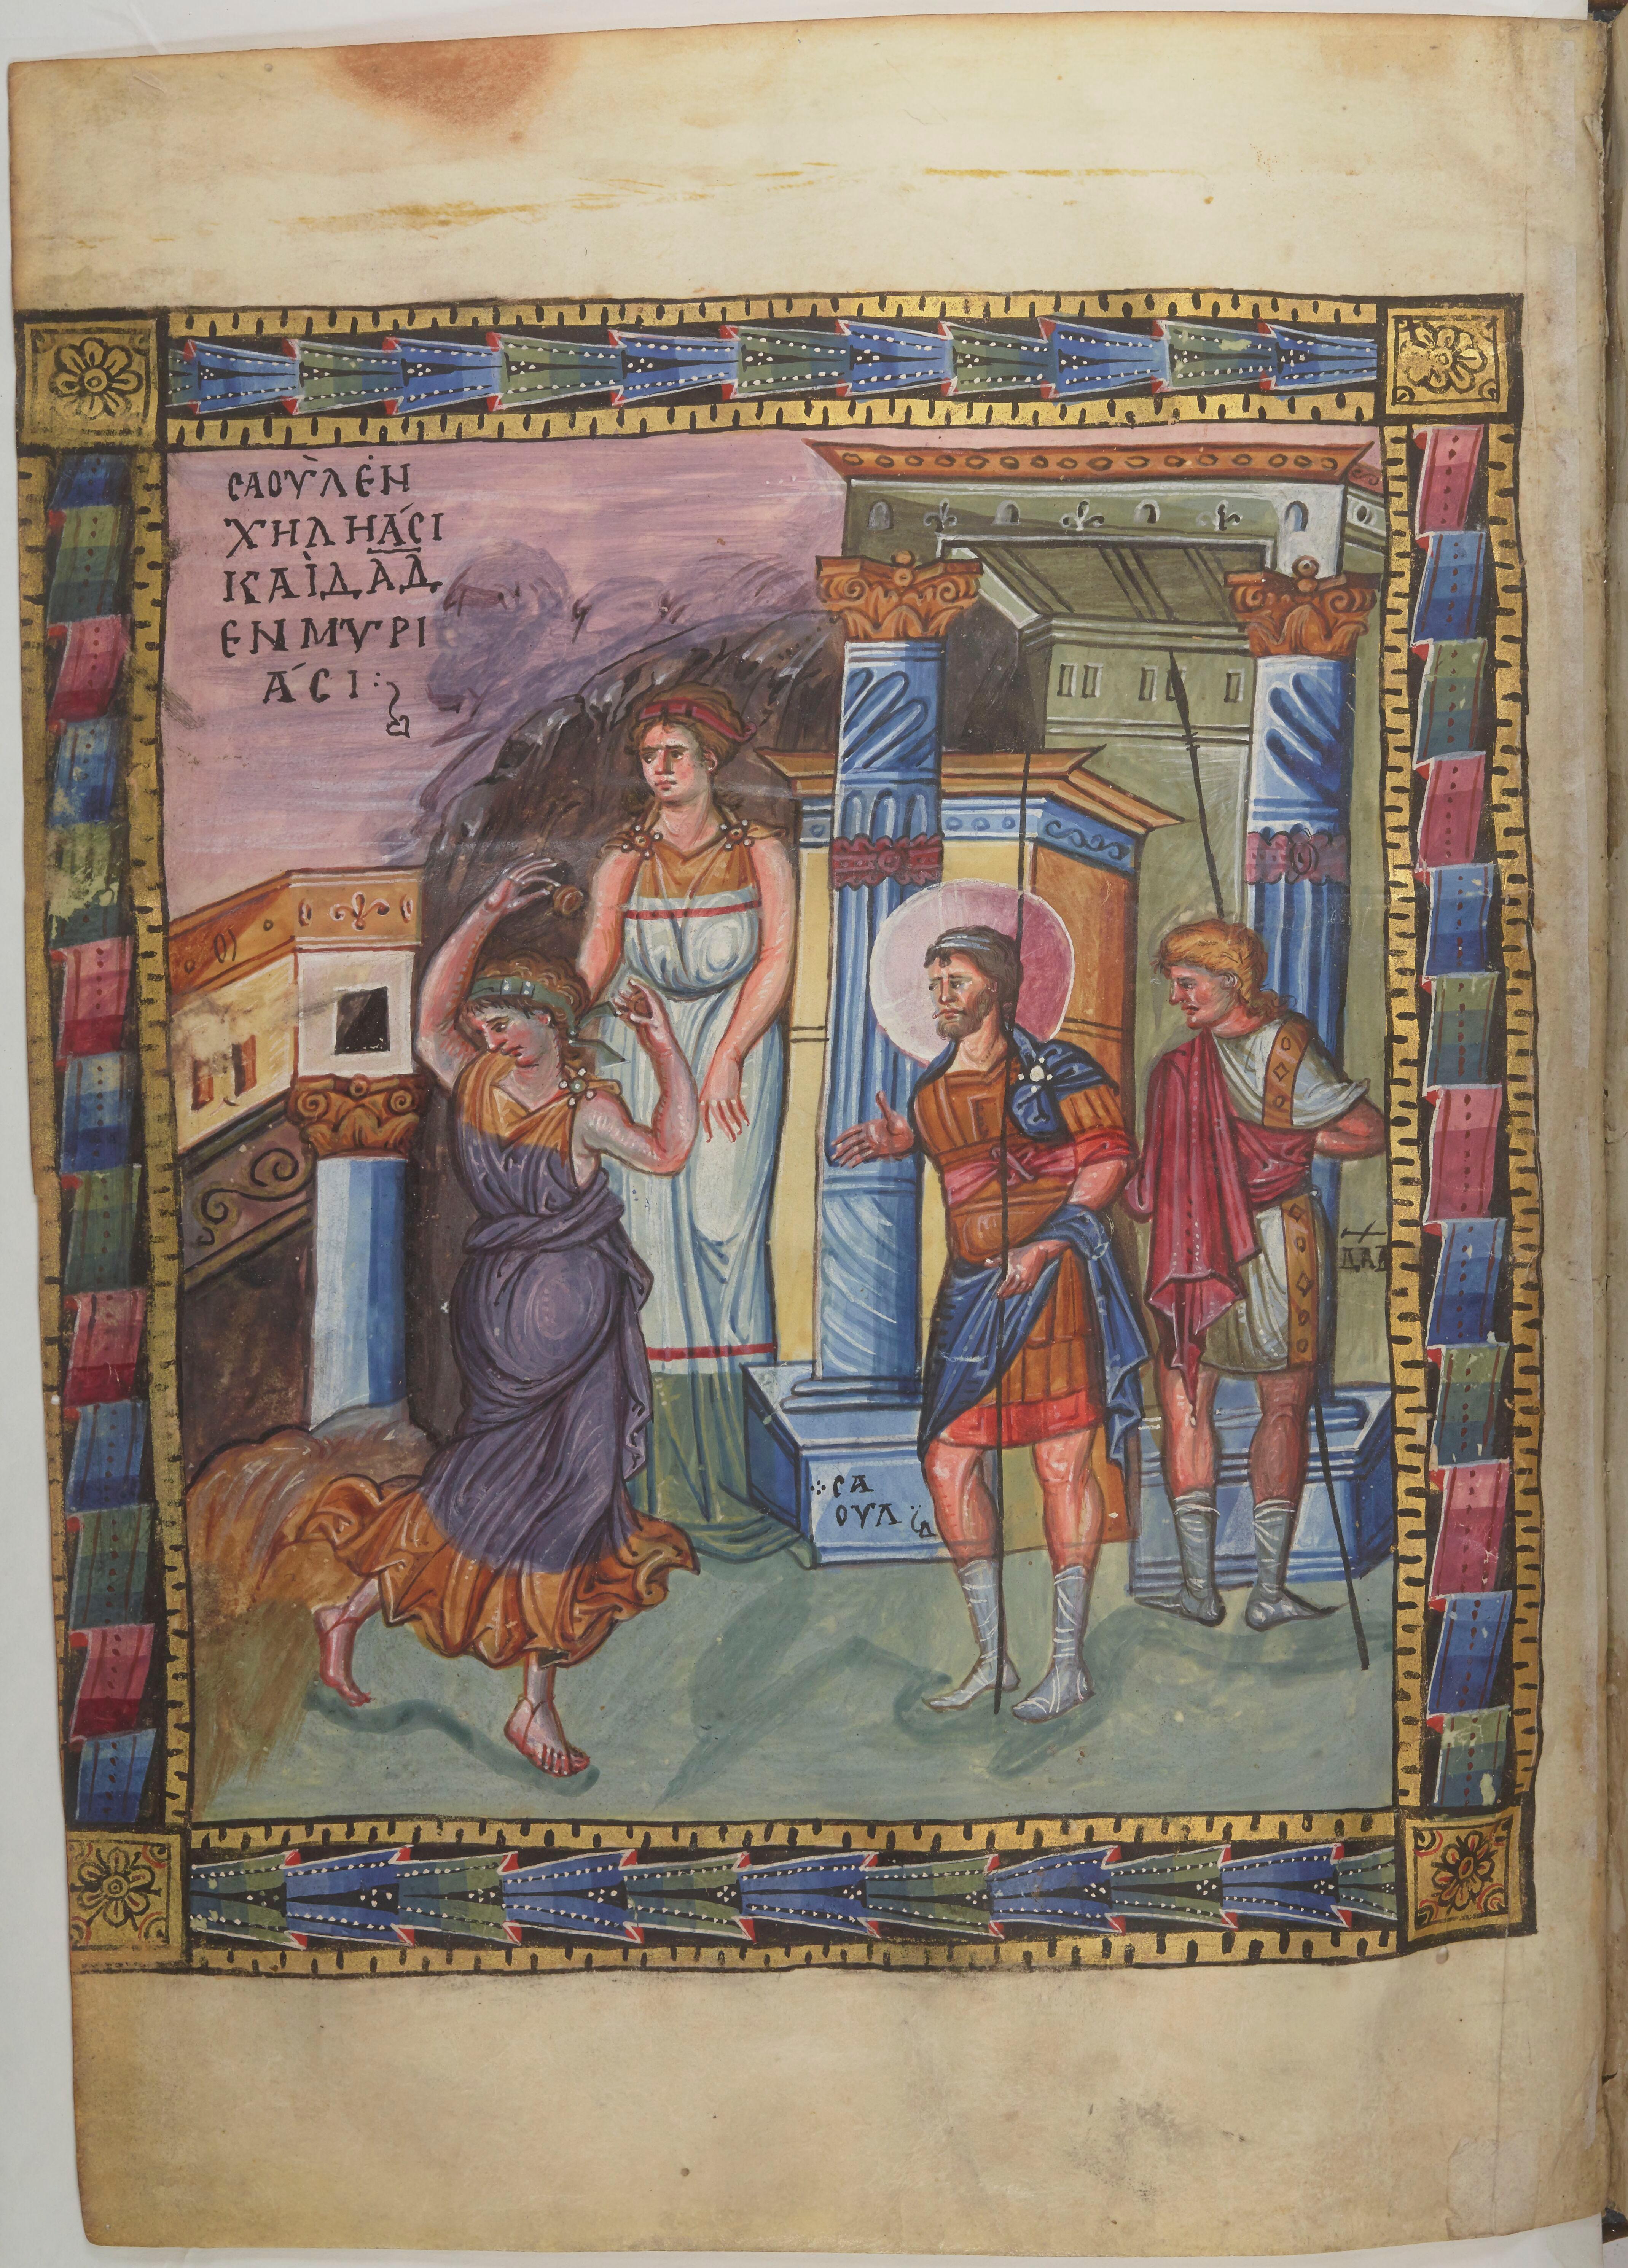 ϹΑΟῪΛἘΝ
ΧΗΛΗΆϹΙ
ΚΑῚΔΑ̅Δ̅
ΕΝΜΥΡΙ
ΆϹΙ:
ϹΑ
ΟΥΛ
ΔΑΔ